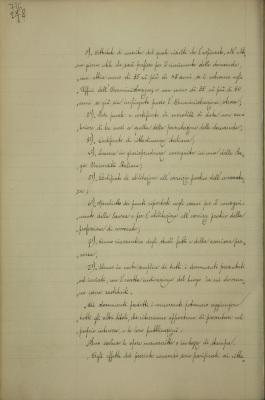 2°). Attestato di nascita dal quale risulti che l'aspirante, all'ul-
timo giorno utile che sarà prefisso per il ricevimento delle domande,
non abbia meno di 25 nè più di
Uffici dell'Amministrazione, e non meno di 25 nè più di 40
anni se già sia impiegato presso l'Amministrazione stessa;
3°). Fede penale e certificato di moralità di data non ante-
riore di tre mesi a quella della presentazione della domanda;
4°). Certificato di cittadinanza italiana;
5°). Laurea in giurisprudenza conseguita in una delle Re-
gie Università Italiane;
di abilitazione all'esercizio pratico dell'avvocatu-
ra;
6°). Specchietto dei punti riportati negli esami per il consegui-
mento della laurea e per l'abilitazione all'esercizio pratico della
professione di avvocato;
degli studi fatti e della carriera per-
corsa;
Elenco in carta semplice di tutti i documenti presentati
col recapito, con l'esatta indicazione del luogo in cui devono
essere restituiti.
Ai documenti predetti i concorrenti potranno aggiungere
tutti gli altri titoli, che riterranno opportuno di presentare nel
proprio interesse, e le loro pubblicazioni.
Sono escluse le opere manoscritte o in bozze di stampa.
Agli effetti del presente concorso sono parificati ai citta-